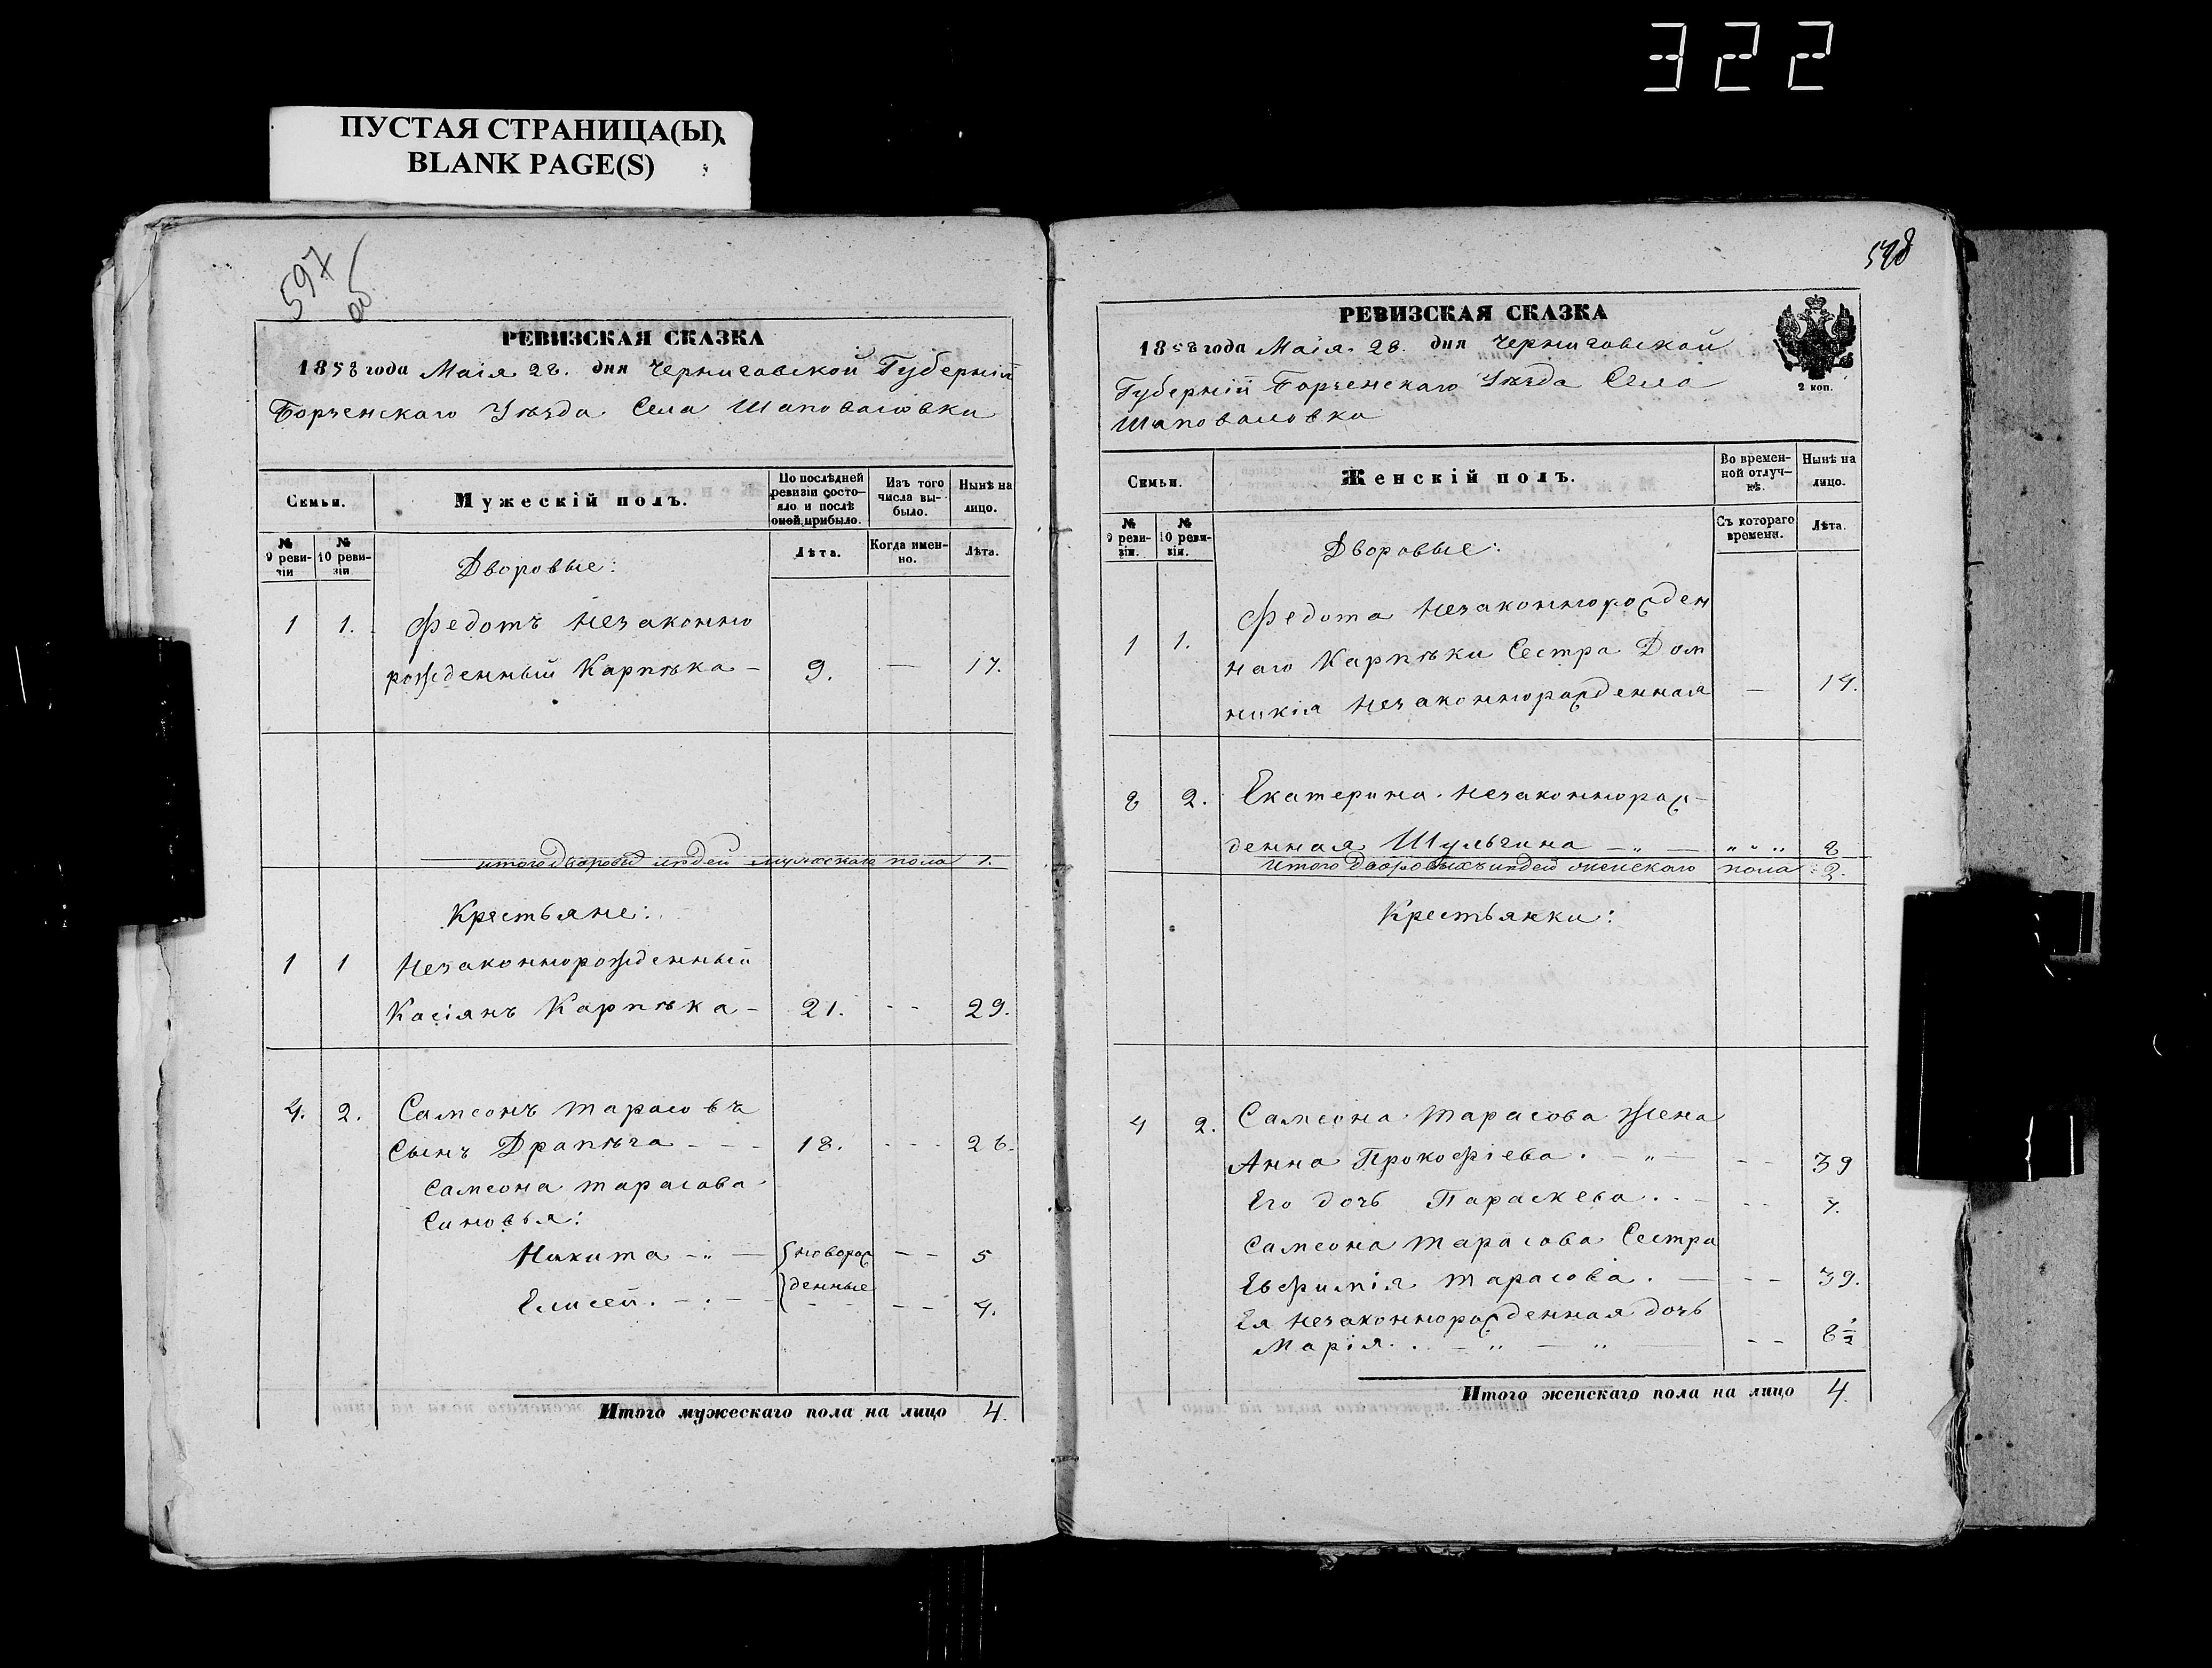 322
ПУСТАЯ СТРАНИЦА(Ы)
BLANK PAGE(S)
597
об
РЕВИЗСКАЯ СКАЗКА
1858 года Маія 28. дня Черниговской Губерніи
Борзенскаго Уѣзда Села Шаповаловки
Семьи.
Мужескій полъ.
По послѣдней ревизіи состояло и послѣ оной прибыло.
Изъ того числа выбыло.
Нынѣ на лицо.
№ 9 ревизіи
№ 10 ревизіи
Лѣта.
Когда именно.
Лѣта.
Дворовые:
1 1. Федотъ незаконно
рожденный Карпѣка - 9. — 17.
итого дворовых людей мужскаго пола 1.
Крестьяне:
1 1 Незаконнорожденный
Касіянъ Карпѣка - 21. - - 29.
4. 2. Самсонъ Тарасовъ
Сынъ Драпѣга - - - 18. - - - 26.
Самсона Тарасова
Синовья:
Никита - „ — новорож - - 5
Елисей. - . - - денные - - 4.
Итого мужескаго пола на лицо 4.
598
РЕВИЗСКАЯ СКАЗКА
1858 года Маія 28. дня Черниговской
Губерніи Борзенскаго Уѣзда Села
Шаповаловки
2 коп.
Семьи.
Женскій полъ.
Во временной отлучкѣ.
Нынѣ на лицо.
№ 9 ревизіи.
№ 10 ревизіи.
Съ котораго времени.
Лѣта.
Дворовые:
Федота Незаконнорожден
1 1. наго Карпѣки Сестра Дом
никія Незаконнорожденная — 14.
8 2. Екатерина Незаконнорож-
денная Шульгина — „ — „ „ „ 8
Итого дворовыхъ людей женскаго пола 2.
Крестьянки:
4 2. Самсона Тарасова Жена
Анна Прокофіева. - „ - - - 39
Его дочь Параскева. . - - - 7.
Самсона Тарасова Сестра
Евфимія Тарасова. — - - 39.
Ея незаконнорожденная дочь
Марія. . - „ — „ — - - 8½
Итого женскаго пола на лицо 4.